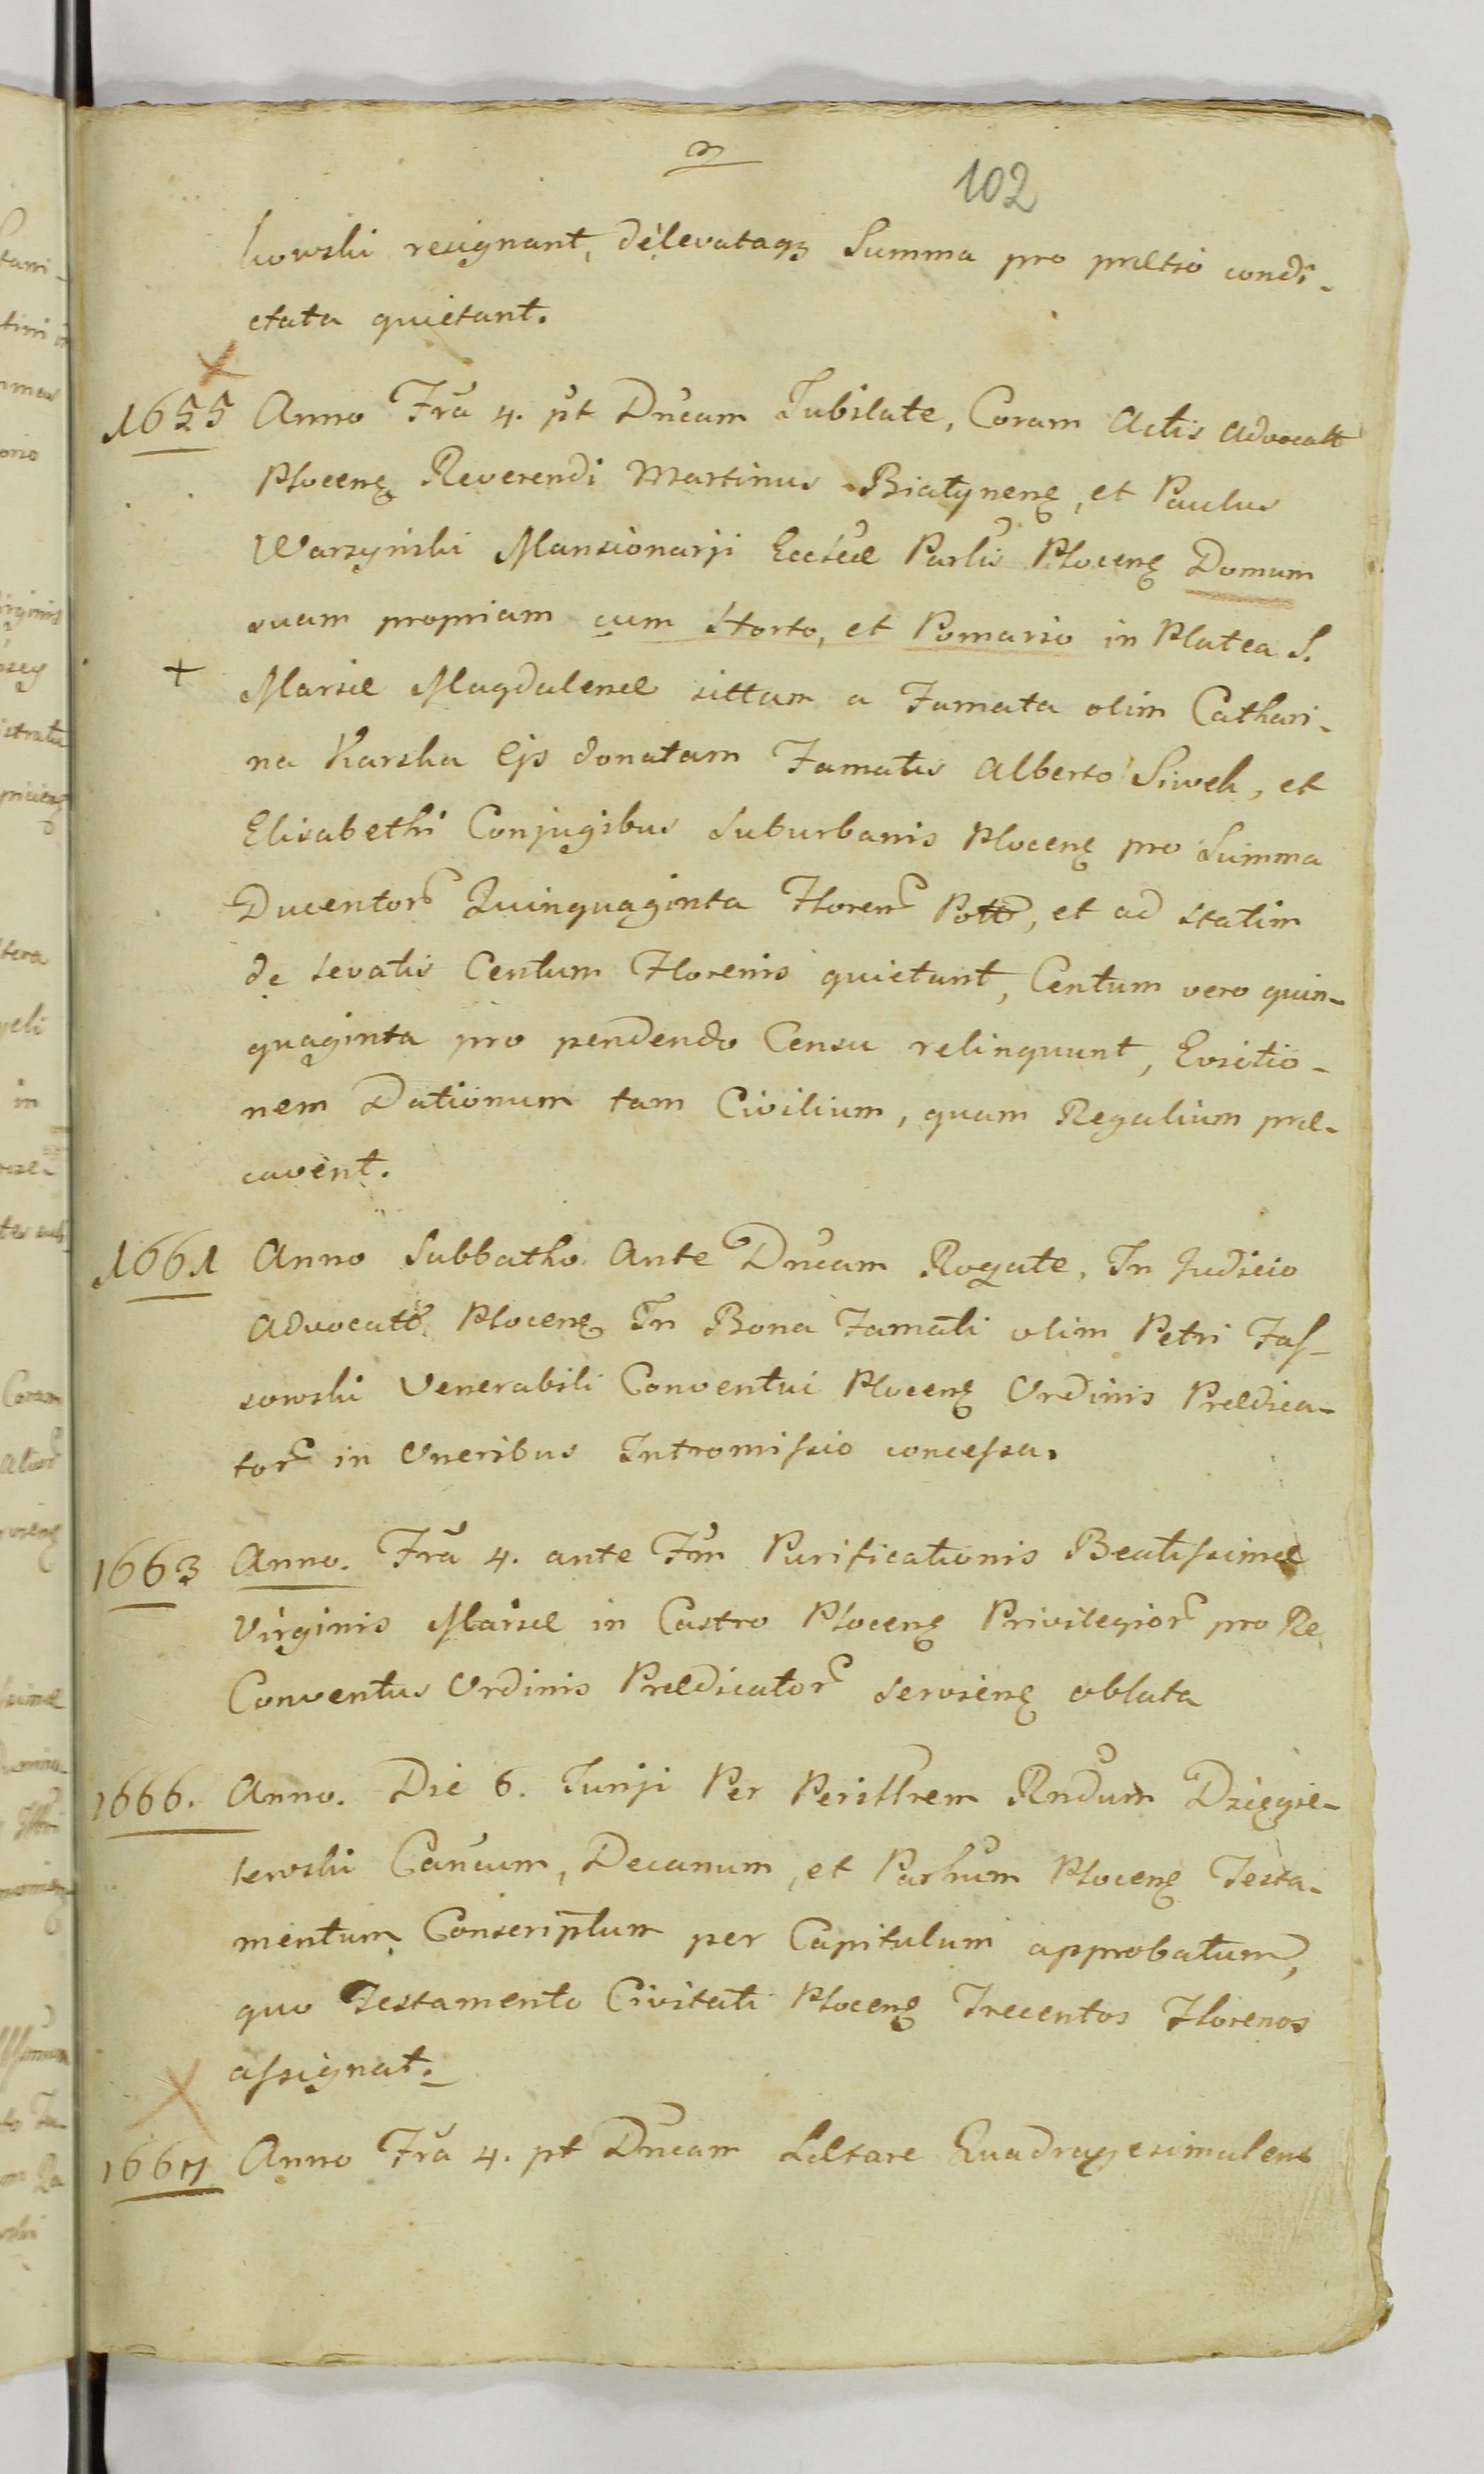 102
kowski resignant, de levataqꝫ Summa pro prætio condi-
ctata quietant.
1655 Anno Fra 4. pt Dncam Jubilate, Coram Actis Advocatt
Plocens Reverendi Martinus Białynens, et Paulus
Warzynski Mansionarji Ecclæ Parlis Plocens Domum
suam propriam cum Horto, et Pomario in Platea S.
+ Mariæ Magdalenæ sittam a Famata olim Cathari-
na Karska Ejs donatam Famatis Alberto Siwek, et
Elisabethi Conjugibus Suburbanis Plocens pro Summa
Ducentor Quinquaginta Floren Poll, et ad statim
de levatis Centum Florenis quietant, Centum vero quin-
quaginta pro pendendo Censu relinquunt, Evictio-
nem Dationum tam Civilium, quam Regalium præ-
cavent.
1661 Anno Sabbatho Ante Dncam Rogate, In Judicio
Advocatt Plocens In Bona Famati olim Petri Jas-
sowski Venerabili Conventui Plocens Ordinis Prædica-
tor in Oneribus Intromissio concessa.
1663 Anno. Fra 4. ante Fm Purificationis Beatissimæ
Virginis Mariæ in Castro Plocens Privilegior pro Re
Conventus Ordinis Prædicator serviens oblata
1666. Anno. Die 6. Junji Per Perillrem Rndum Dzięgie-
lewski Cancum, Decanum, et Parhum Plocens Testa-
mentum Conscriptum per Capitulum approbatum,
quo Testamento Civitati Plocens Trecentos Florenos
assignat.
1667 Anno Fra 4. pt Dncam Lætare Quadragesimalem